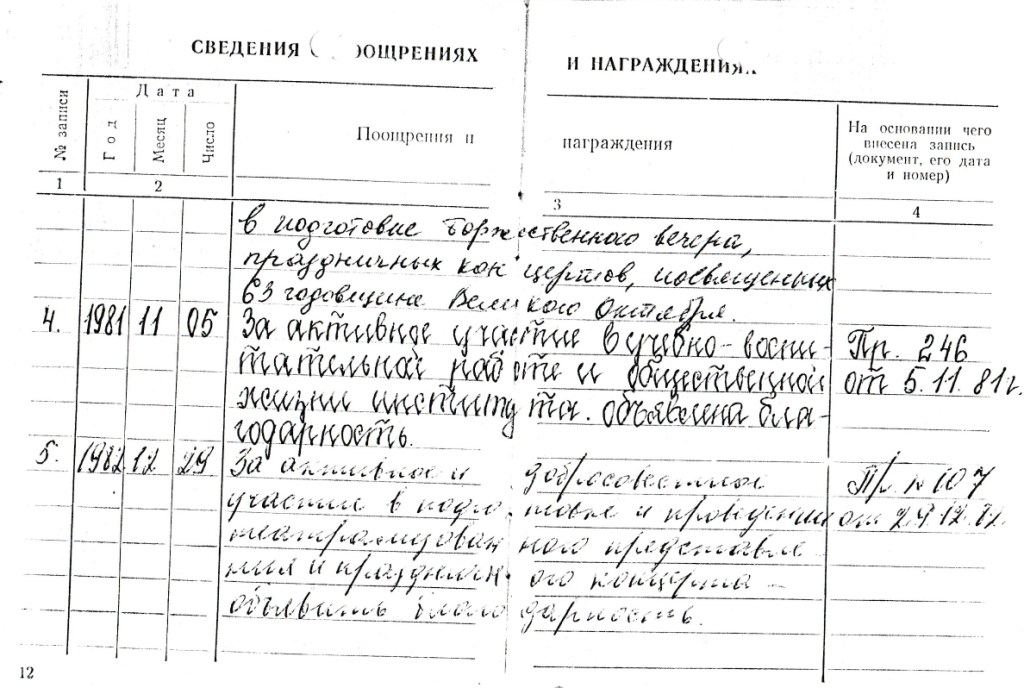 СВЕДЕНИЯ ООЩРЕНИЯХ И НАГРАЖДЕНИЯ
№ записи
Дата
Год
Месяц
Число
Поощрения и награждения
На основании чего
внесена запись
(документ, его дата
и номер)
1 2 3 4
в подготовке торжественного вечера,
праздничных концертов, посвященных
63 годовщине Великого Октября.
4. 1981 11 05 За активное участие в учебно-воспи- Пр. 246
тательной работе и общественной от 5.11.81г.
жизни института. объявлена бла-
годарность.
5. 1982 12 29 За активное и добросовестное Пр. № 607
участие в подготовке и проведении от 29.12.82.
театрализованного представле
ния и праздничного концерта -
объявить благодарность.
12